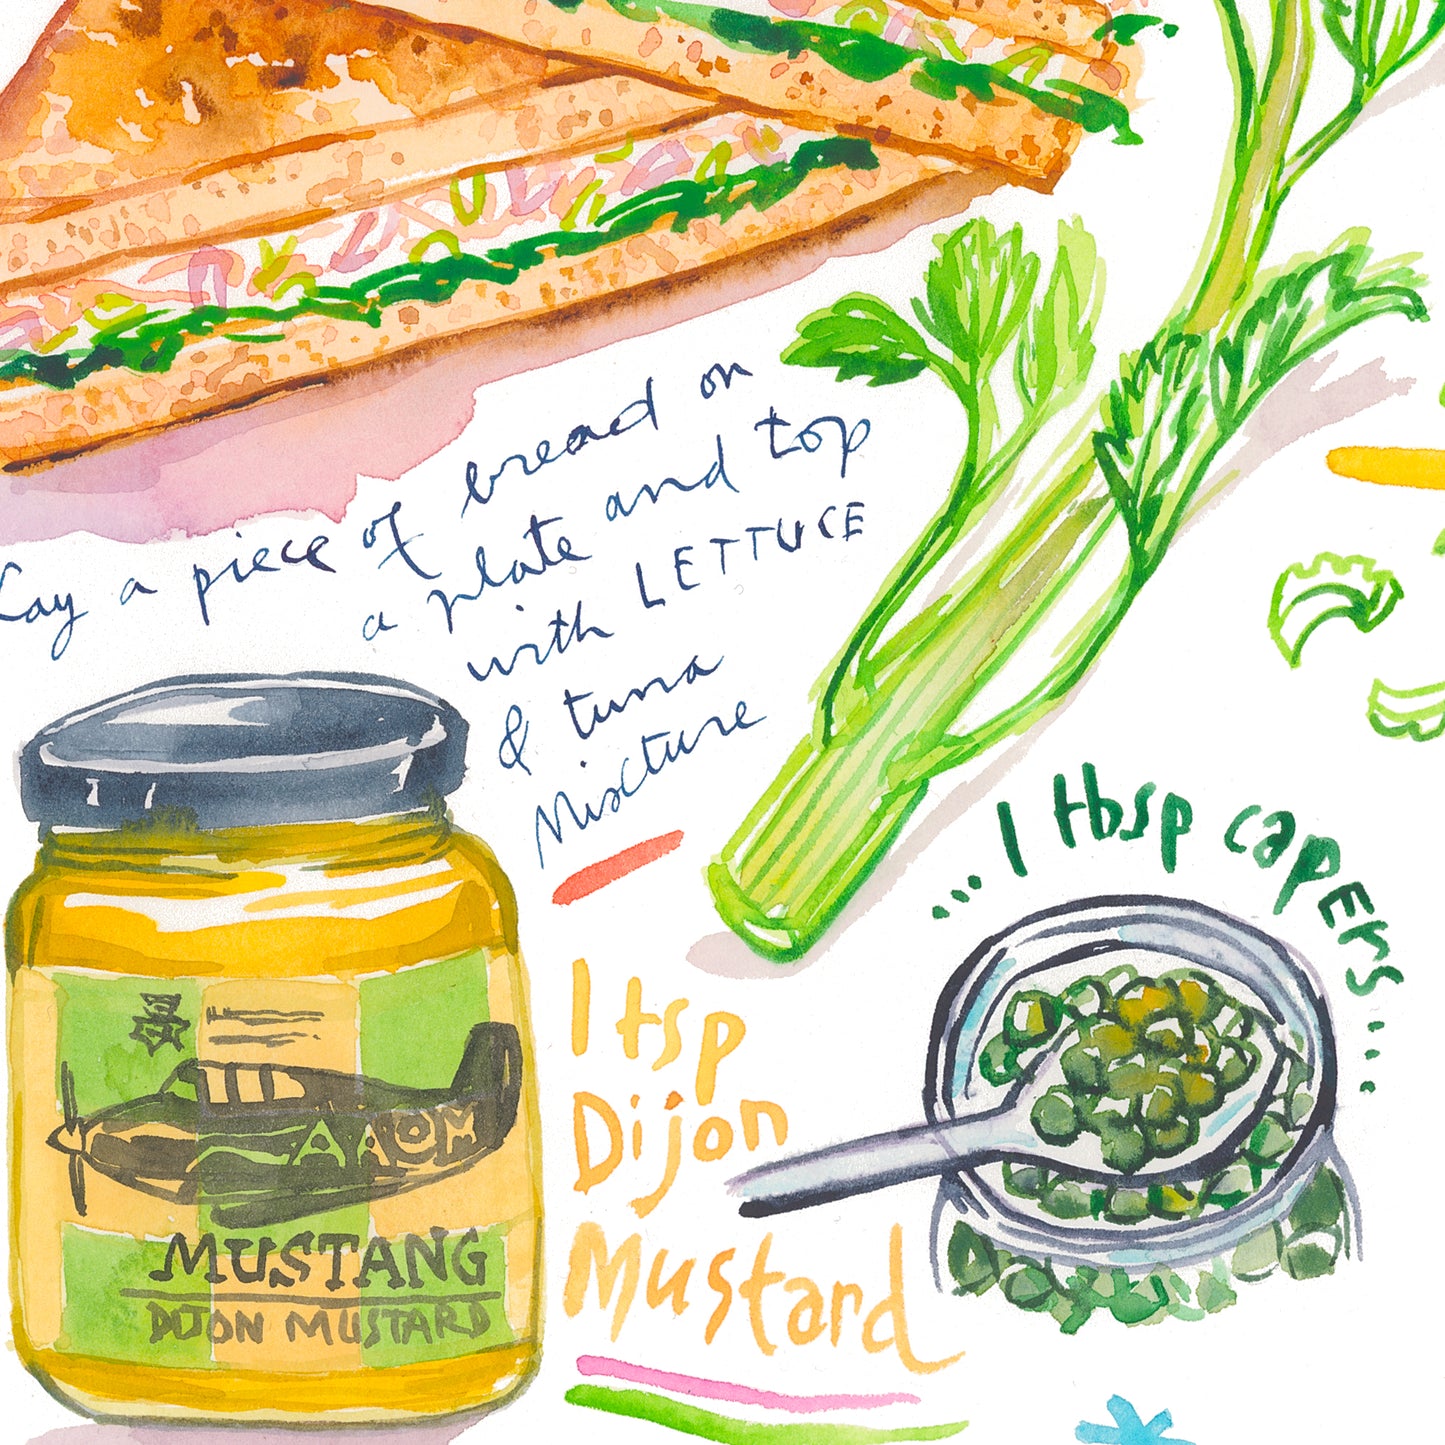 Lay a piece of bread on
a plate and top
with LETTUCE
& tuna
Mixture
...1 tbsp capers...
1 tsp
Dijon
Mustard
MUSTANG
DIJON MUSTARD